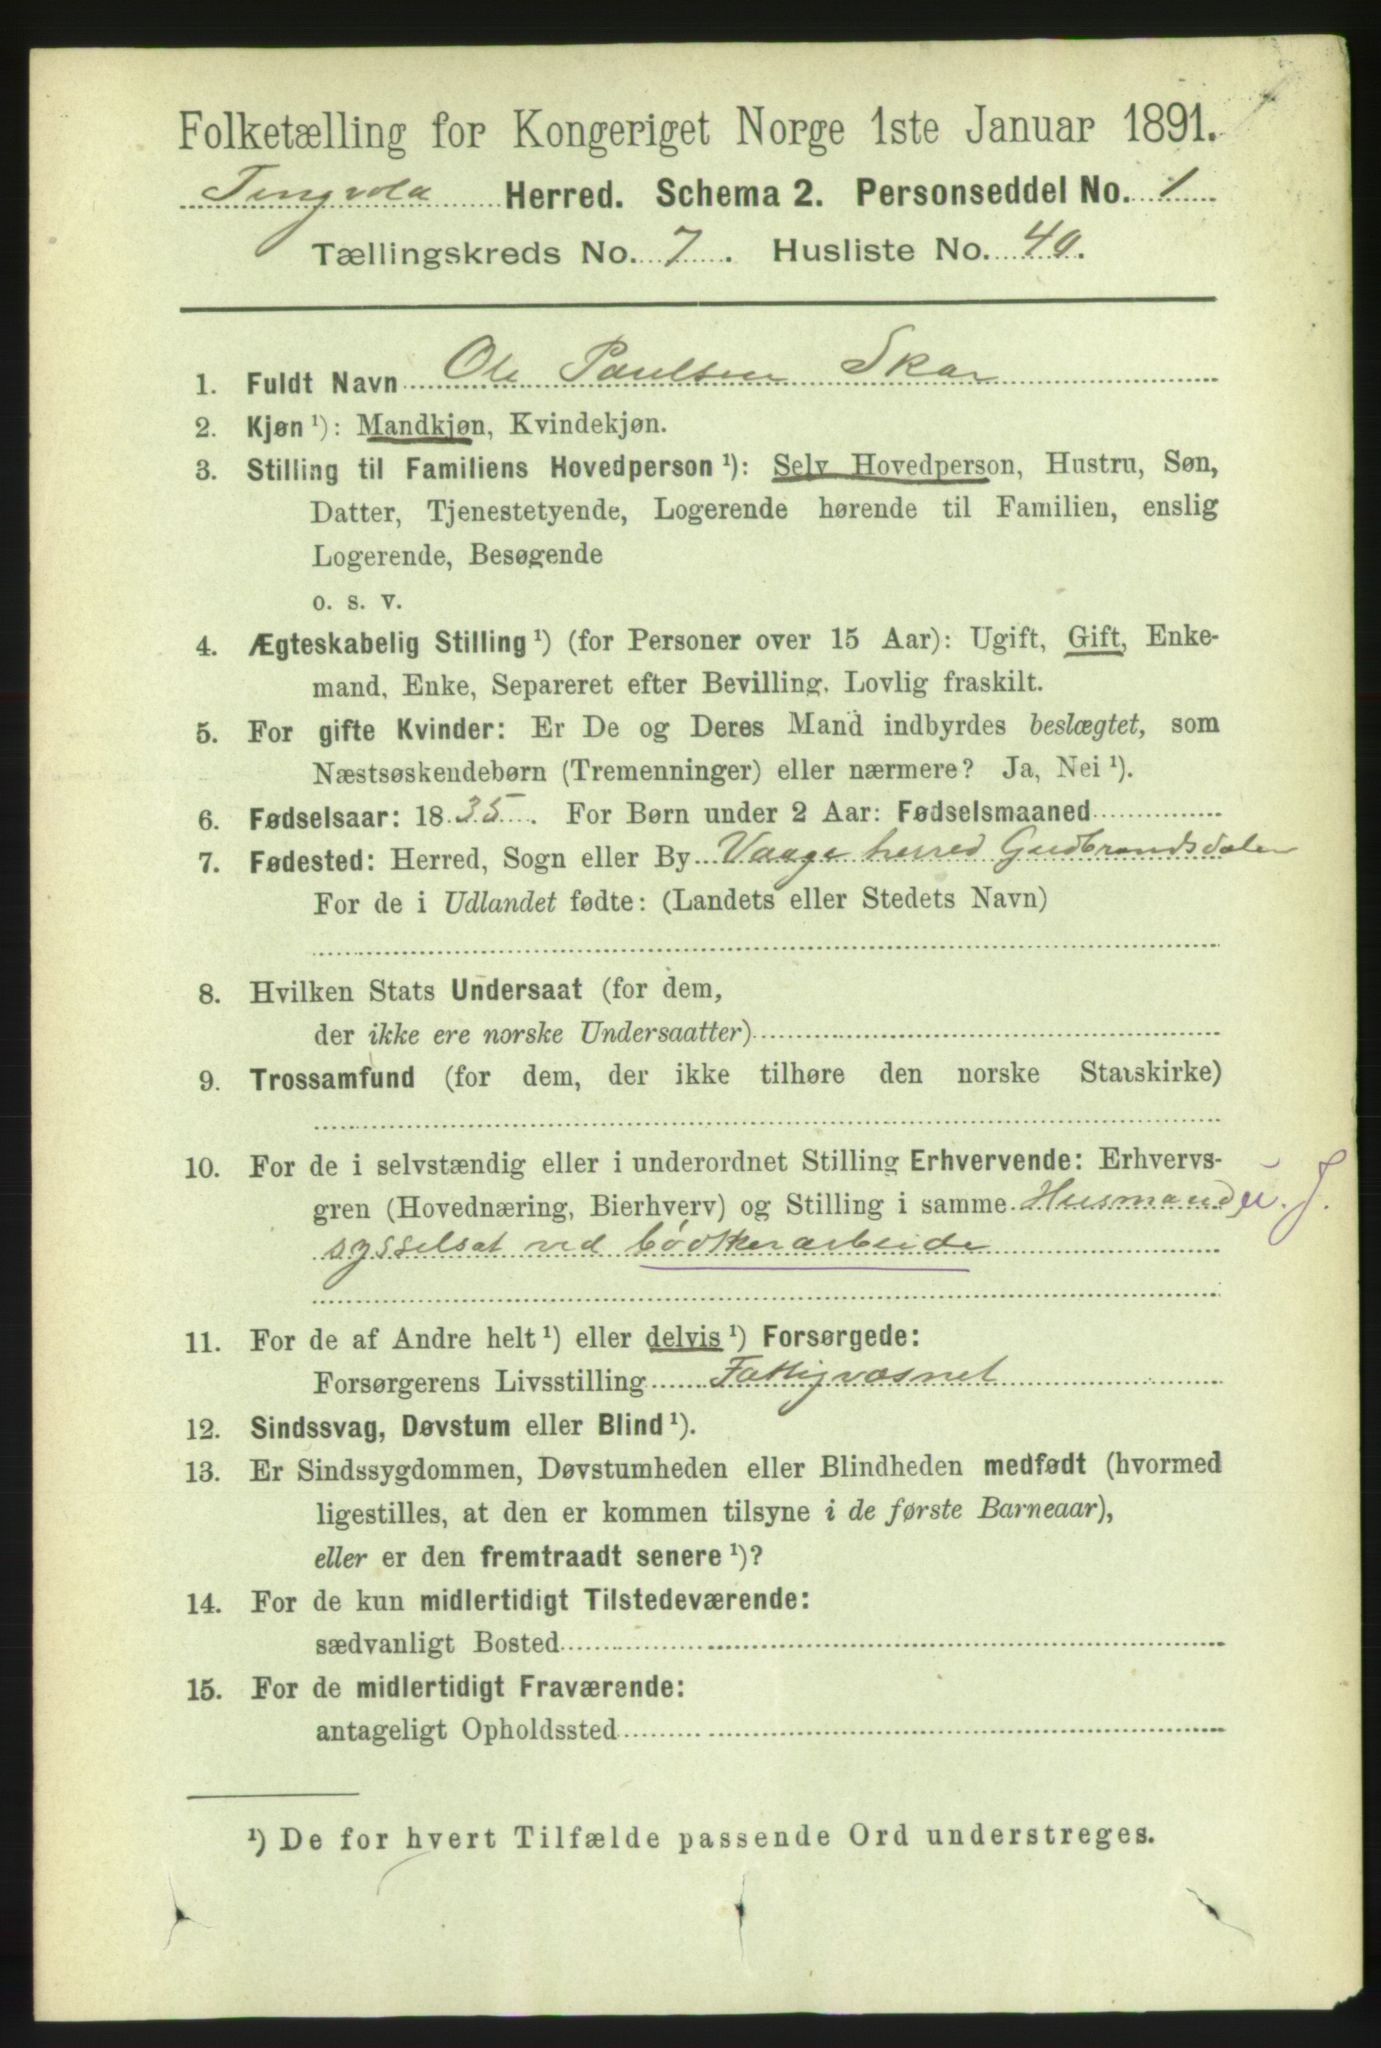 Folketælling for Kongeriget Norge 1ste Januar 1891.
Tingvold Herred. Schema 2. Personseddel No. 1
Tællingskreds No. 7. Husliste No. 40.
1. Fuldt Navn Ole Paulsen Skar
2. Kjøn ¹): Mandkjøn, Kvindekjøn.
3. Stilling til Familiens Hovedperson ¹): Selv Hovedperson, Hustru, Søn,
Datter, Tjenestetyende, Logerende hørende til Familien, enslig
Logerende, Besøgende
o. s. v.
4. Ægteskabelig Stilling ¹) (for Personer over 15 Aar): Ugift, Gift, Enke-
mand, Enke, Separeret efter Bevilling, Lovlig fraskilt.
5. For gifte Kvinder: Er De og Deres Mand indbyrdes beslægtet, som
Næstsøskendebørn (Tremenninger) eller nærmere? Ja, Nei ¹).
6. Fødselsaar: 1835. For Børn under 2 Aar: Fødselsmaaned
7. Fødested: Herred, Sogn eller By Vaage herred Gudbrandsdalen
For de i Udlandet fødte: (Landets eller Stedets Navn)
8. Hvilken Stats Undersaat (for dem,
der ikke ere norske Undersaatter)
9. Trossamfund (for dem, der ikke tilhøre den norske Statskirke)
10. For de i selvstændig eller i underordnet Stilling Erhvervende: Erhvervs-
gren (Hovednæring, Bierhverv) og Stilling i samme Husmand, u. J.
sysselsat ved bødkerarbeide
11. For de af Andre helt ¹) eller delvis ¹) Forsørgede:
Forsørgerens Livsstilling Fattigvæsnet
12. Sindssvag, Døvstum eller Blind ¹).
13. Er Sindssygdommen, Døvstumheden eller Blindheden medfødt (hvormed
ligestilles, at den er kommen tilsyne i de første Barneaar),
eller er den fremtraadt senere ¹)?
14. For de kun midlertidigt Tilstedeværende:
sædvanligt Bosted
15. For de midlertidigt Fraværende:
antageligt Opholdssted
¹) De for hvert Tilfælde passende Ord understreges.